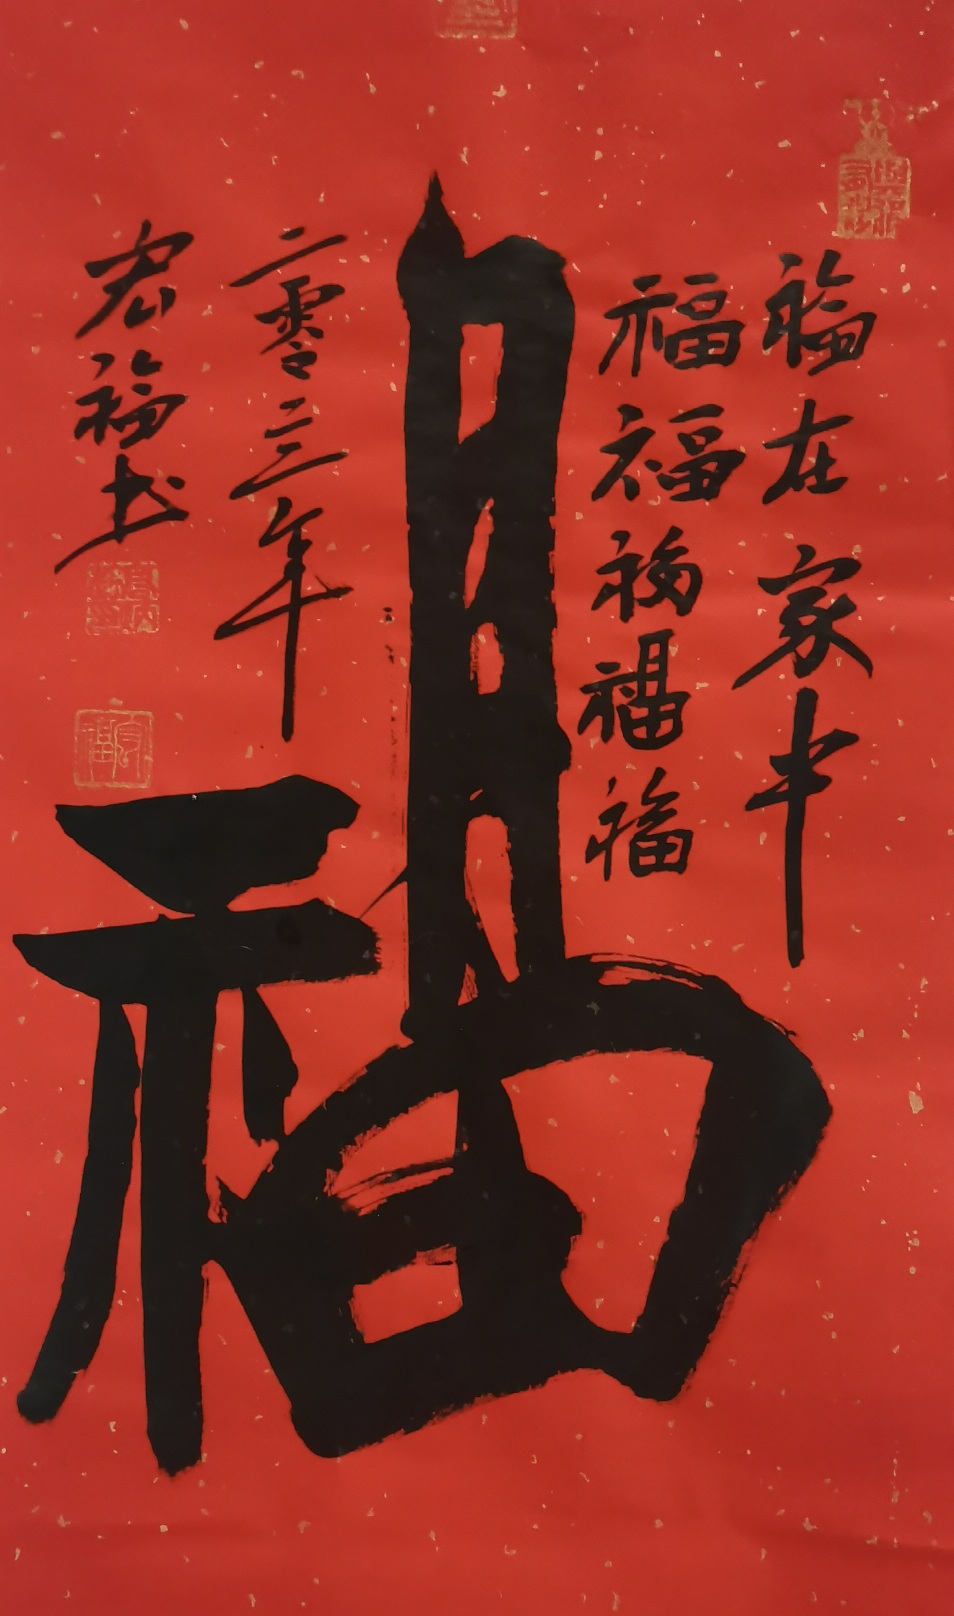 福在家中
福福福福福
福
二零二三年
宏福书
宏福